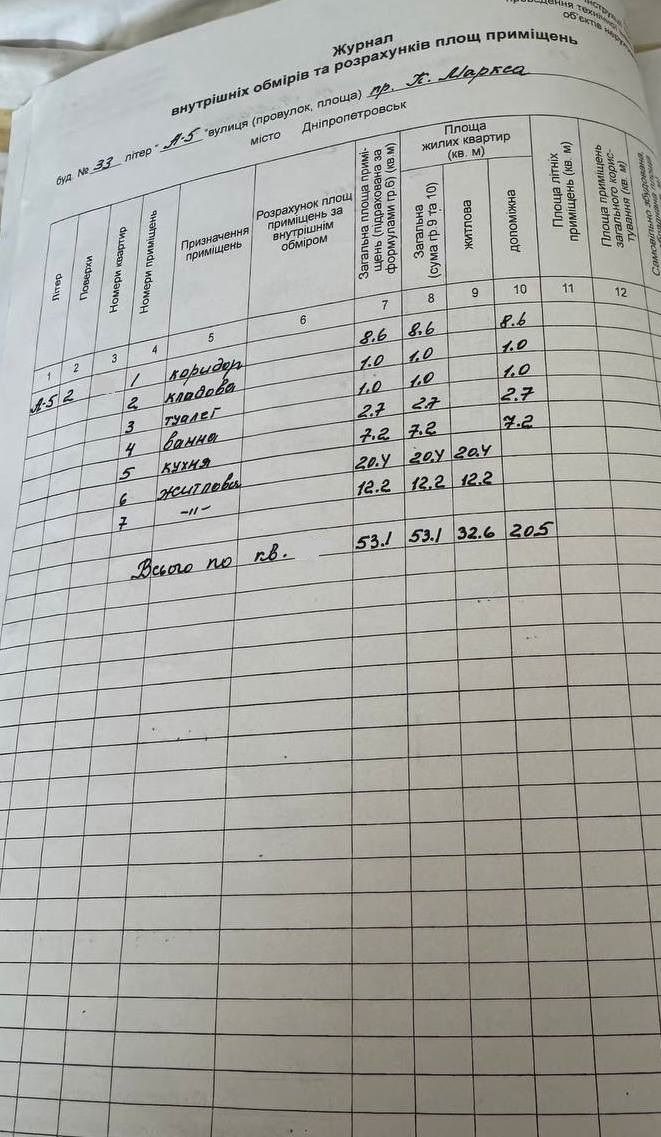 інструкції
проведення технічної
об'єктів нерухом
Журнал
внутрішніх обмірів та розрахунків площ приміщень
буд. № 33 літер "А-5" вулиця (провулок, площа) пр. К. Маркса
місто Дніпропетровськ
Літер
Поверхи
Номери квартир
Номери приміщень
Призначення приміщень
Розрахунок площ приміщень за внутрішнім обміром
Загальна площа приміщень (підрахована за формулами гр.6) (кв.м)
Площа жилих квартир (кв. м)
Загальна (сума гр 9 та 10)
житлова
допоміжна
Площа літніх приміщень (кв. м)
Площа приміщень загального користування (кв. м)
Самовільно збудована
1 2 3 4 5 6 7 8 9 10 11 12
А-5 2 1 коридор 8.6 8.6 8.6
2 кладова 1.0 1.0 1.0
3 туалет 1.0 1.0 1.0
4 ванна 2.7 2.7 2.7
5 кухня 7.2 7.2 7.2
6 житлова 20.4 20.4 20.4
7 -"- 12.2 12.2 12.2
Всього по кв. 53.1 53.1 32.6 20.5